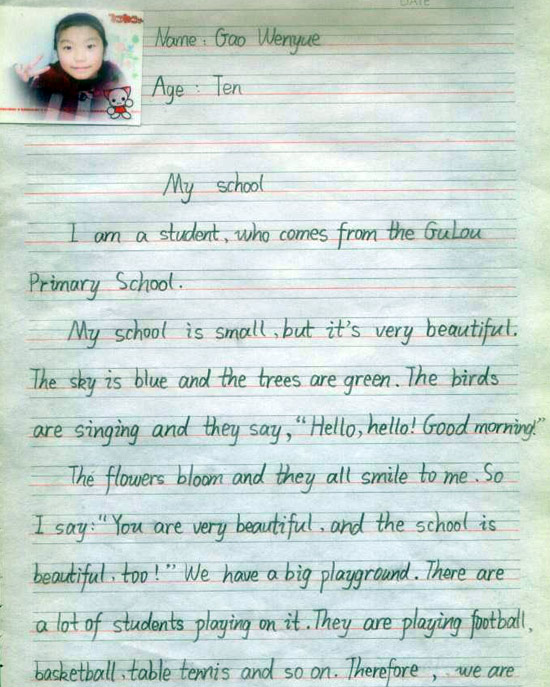 DATE
Name: Gao Wenyue
Age: Ten
My school
I am a student, who comes from the GuLou
Primary School.
My school is small, but it's very beautiful.
The sky is blue and the trees are green. The birds
are singing and they say, "Hello, hello! Good morning!"
The flowers bloom and they all smile to me. So
I say: "You are very beautiful, and the school is
beautiful, too!" We have a big playground. There are
a lot of students playing on it. They are playing football,
basketball, table tennis and so on. Therefore, we are